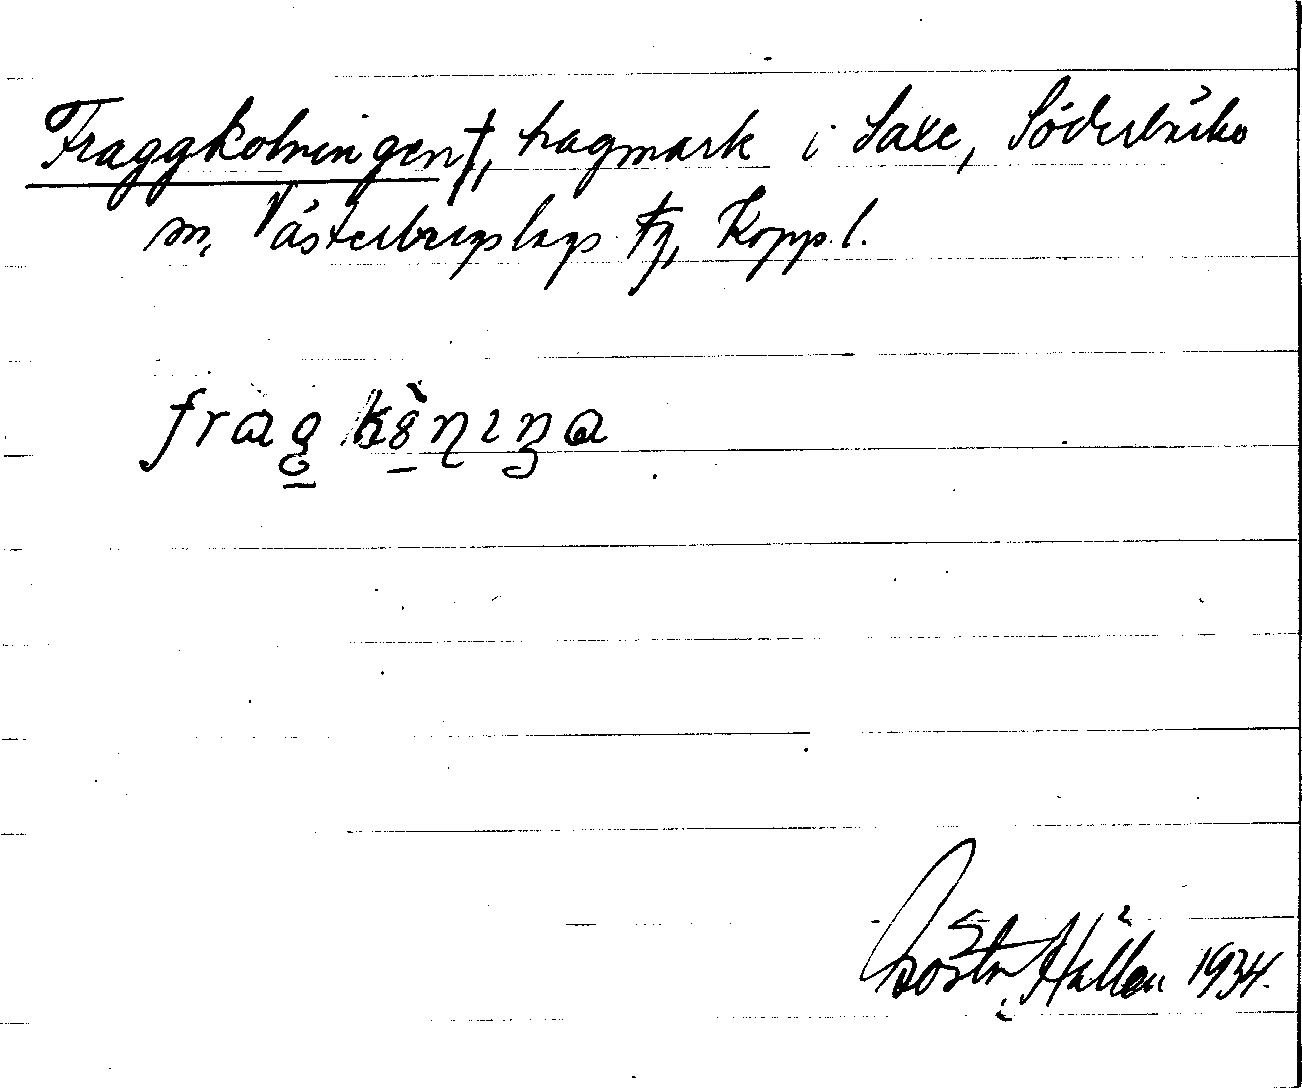 Fraggkolningen†, hagmark i Saxe, Söderbärke
sn, Västerbergslags fg, Kopp. l.
frag kö̀nıŋa
Gösta Hallén 1934.